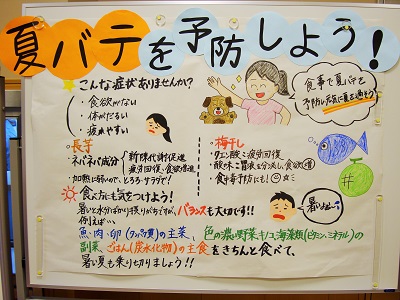 夏バテを予防しよう!
こんな症状ありませんか?
・食欲がない
・体がだるい
・疲れやすい
食事で夏バテを
予防し元気に夏を過そう
・長芋
ネバネバ成分
新陳代謝促進
疲労回復・食欲増進
加熱に弱いので、とろろ・サラダで!
・梅干し
・クエン酸→疲労回復
・酸味→胃液を分泌し、食欲増
・食中毒予防にも!
食べ方にも気をつけよう!
暑いと水分ばかり摂りがちですが、バランスも大切です!!
例えば…
暑い…
魚・肉・卵(タンパク質)の主菜、色の濃い野菜・キノコ・海藻類(ビタミン・ミネラル)の
副菜、ごはん(炭水化物)の主食をきちんと食べて、
暑い夏も乗り切りましょう!!